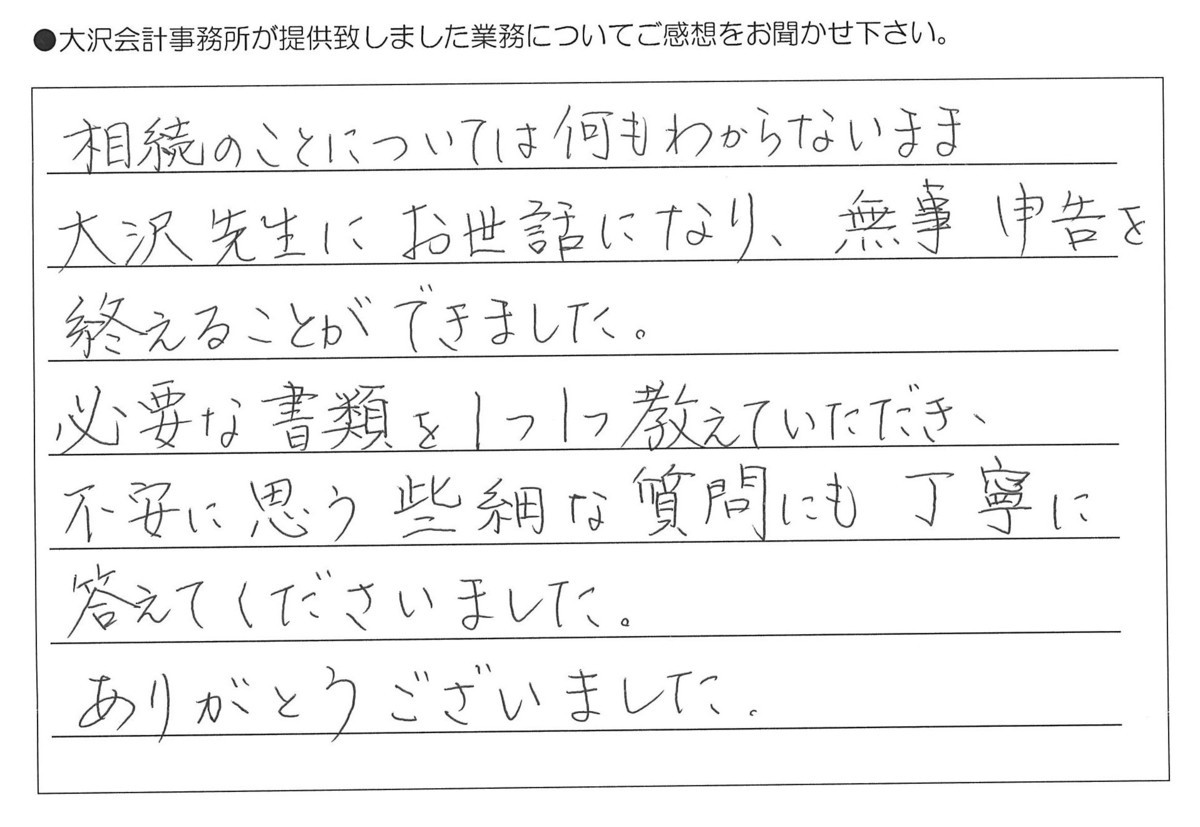 ●大沢会計事務所が提供致しました業務についてご感想をお聞かせ下さい。
相続のことについては何もわからないまま
大沢先生にお世話になり、無事申告を
終えることができました。
必要な書類を1つ1つ教えていただき、
不安に思う些細な質問にも丁寧に
答えてくださいました。
ありがとうございました。